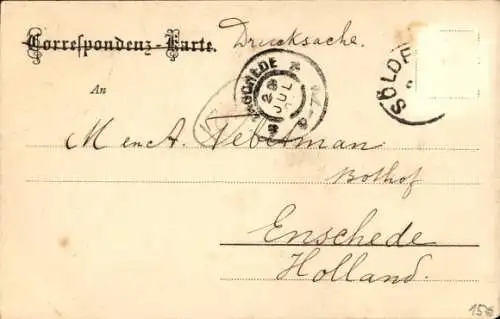 Correspondenz-Karte.
Drucksache.
ENSCHEDE
28
JUL
SÖLD
An
M en A. Teberman
Bothof
Enschede
Holland.
156